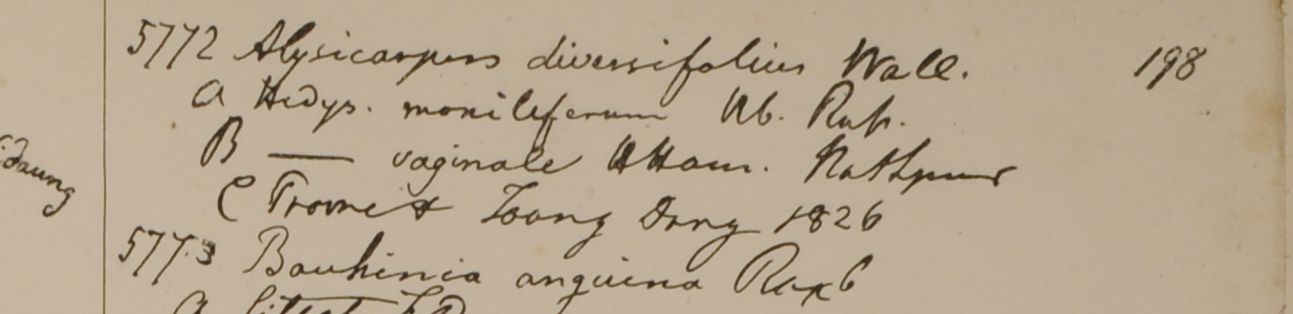 5772 Alysicarpus diversifolius Wall. 198
a Hedys. moniliferum Hb. Rup.
B —— vaginale HHam. Nathpur
C Prome & Toong Dong 1826
5773 Bauhinia anguina Roxb
daung